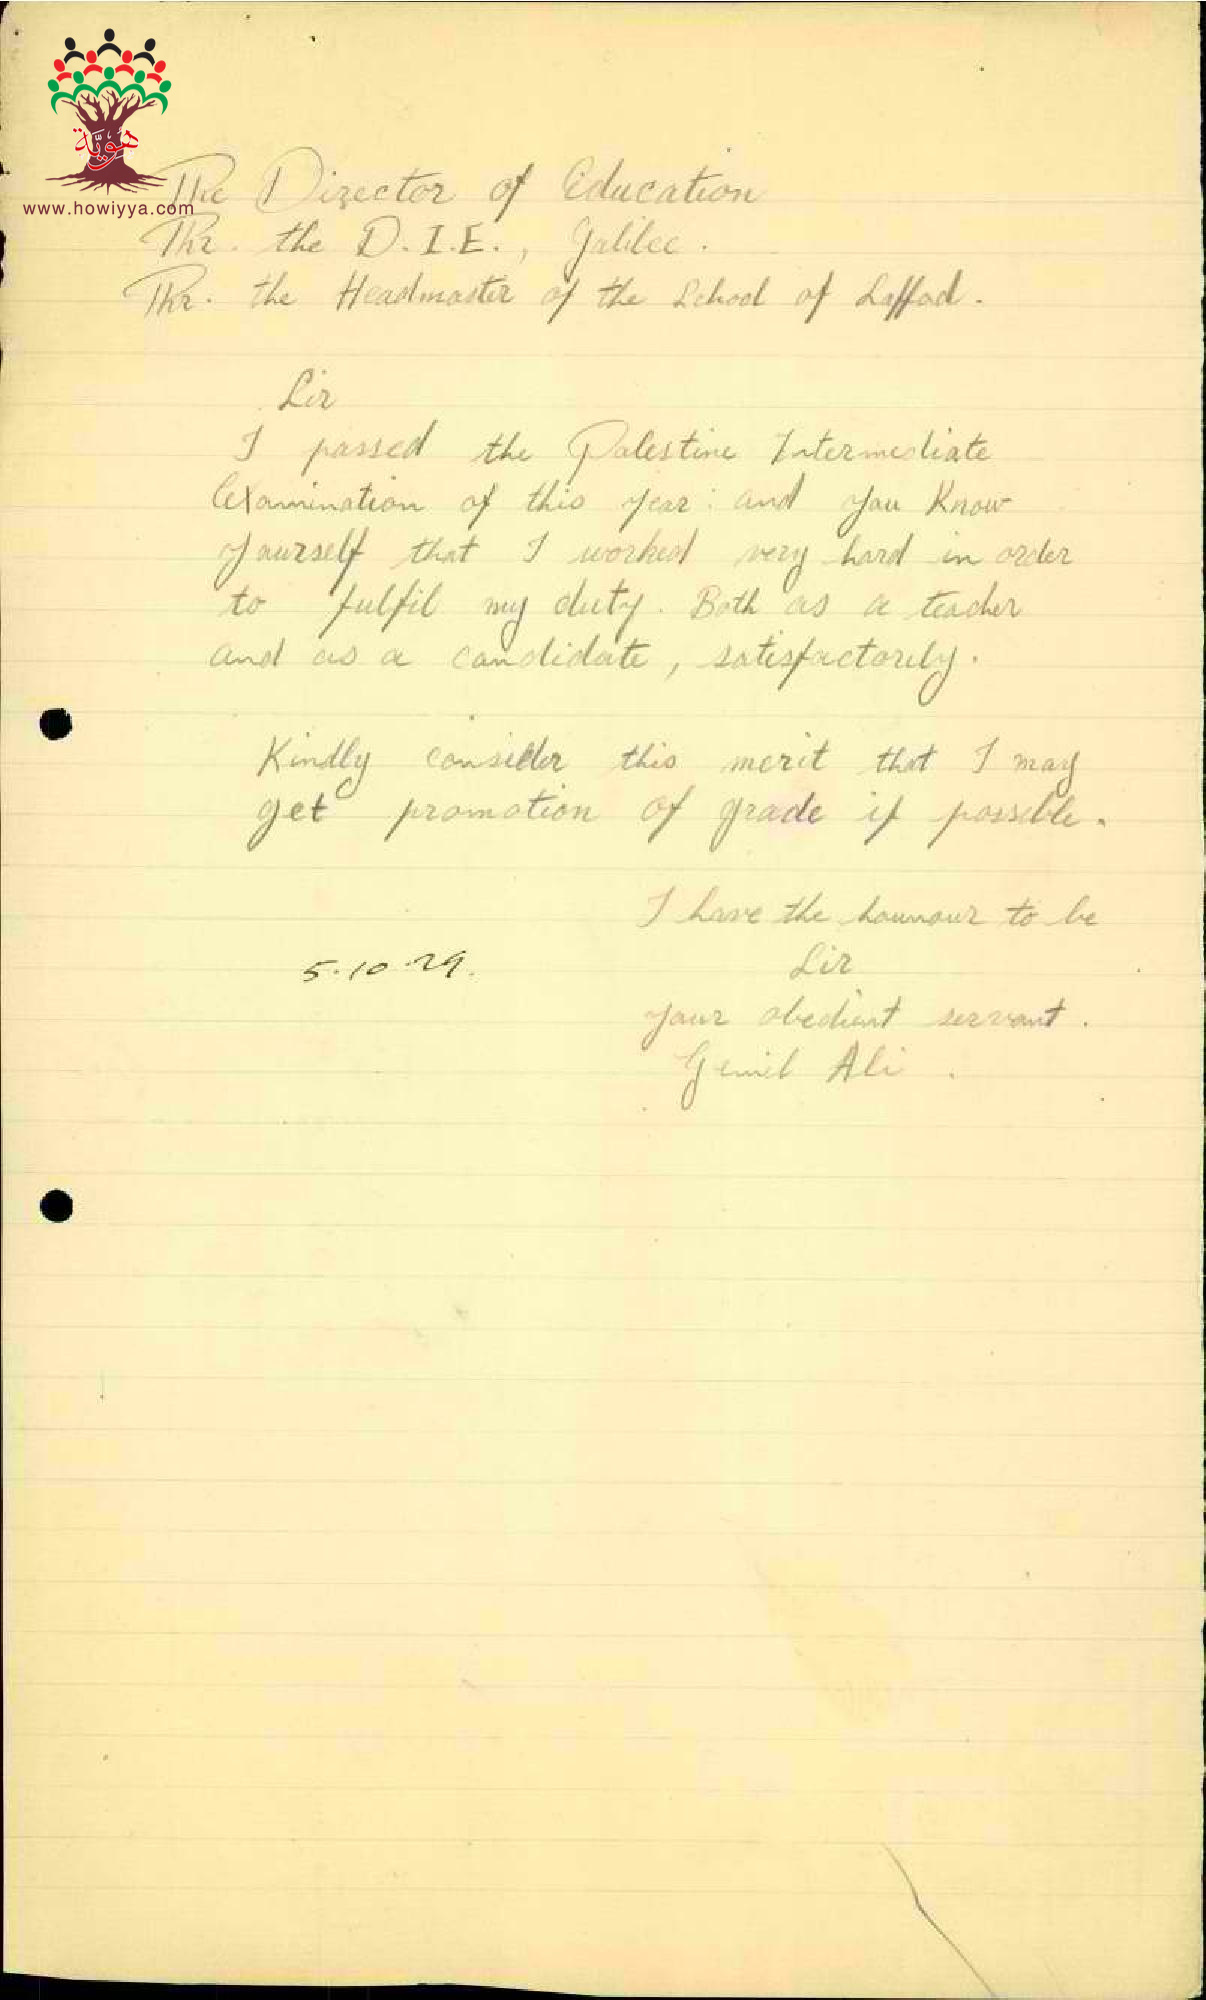 هويّة
www.howiyya.com
The Director of Education
Thr. the D.I.E., Galilee.
Thr. the Headmaster of the School of Saffad.
Sir
I passed the Palestine Intermediate
Examination of this year: and you Know
yourself that I worked very hard in order
to fulfil my duty. Both as a teacher
and as a candidate, satisfactorily.
Kindly consider this merit that I may
get promotion of grade if possible.
I have the hounour to be
5.10.29.
Sir
your obedient servant.
Gemil Ali.